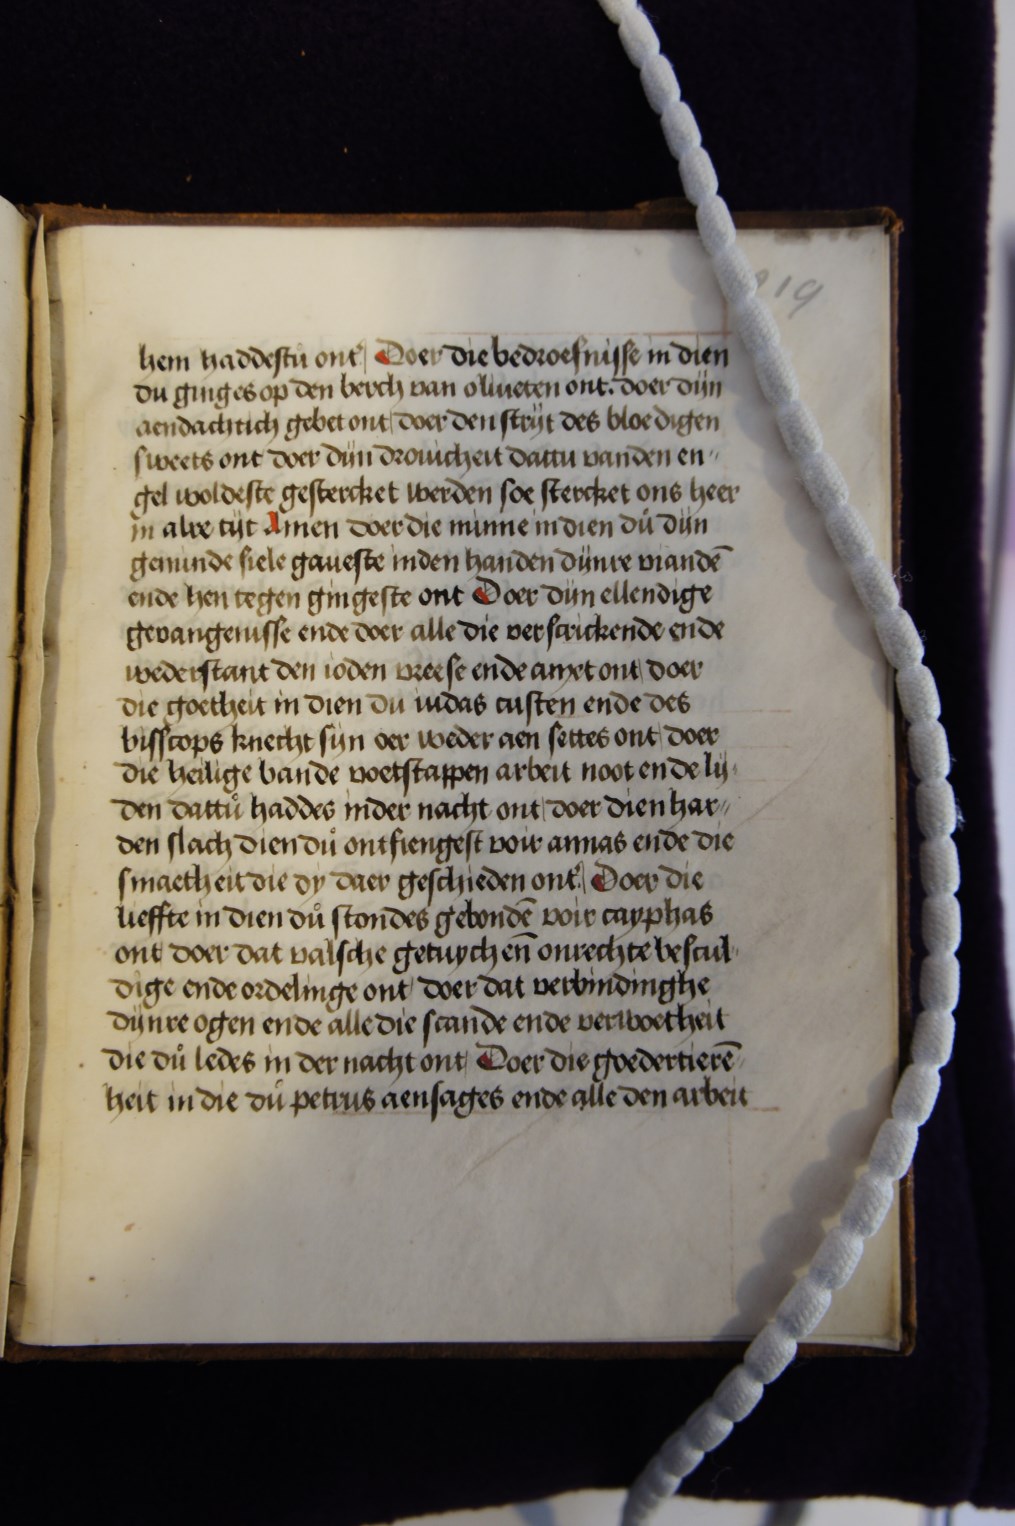 219
hem haddestu ont Doer die bedroefnisse in dien
du ginges op den berch van oliueten ont. doer dijn
aendachtich gebet ont doer den strijt des bloedigen
sweets ont doer dijn drouicheit dattu vanden en〃
gel woldeste gestercket werden soe stercket ons heer
in alre tijt Amen doer die minne in dien dů dijn
geminde siele gaueste inden handen dijnre viandē
ende hen tegen gingeste ont Doer dijn ellendige
geuangenisse ende doer alle die verscrickende ende
wederstant den ioden vreese ende anxt ont doer
die goetheit in dien du iudas custen ende des
bisscops knecht sijn oer weder aen settes ont doer
die heilige bande voetstappen arbeit noot ende lij
den dattů haddes inder nacht ont doer dien har〃
den slach dien dů ontfiengest voir annas ende die
smaetheit die dy daer geschieden ont Doer die
lieffte in dien dů stondes gebondē voir cayphas
ont doer dat valsche getuych eñ onrechte bescul
dige ende ordelinge ont doer dat verbindinghe
dijnre ogen ende alle die scande ende verwoetheit
die dů ledes in der nacht ont Doer die goedertierē
heit in die dů petrus aensages ende alle den arbeit